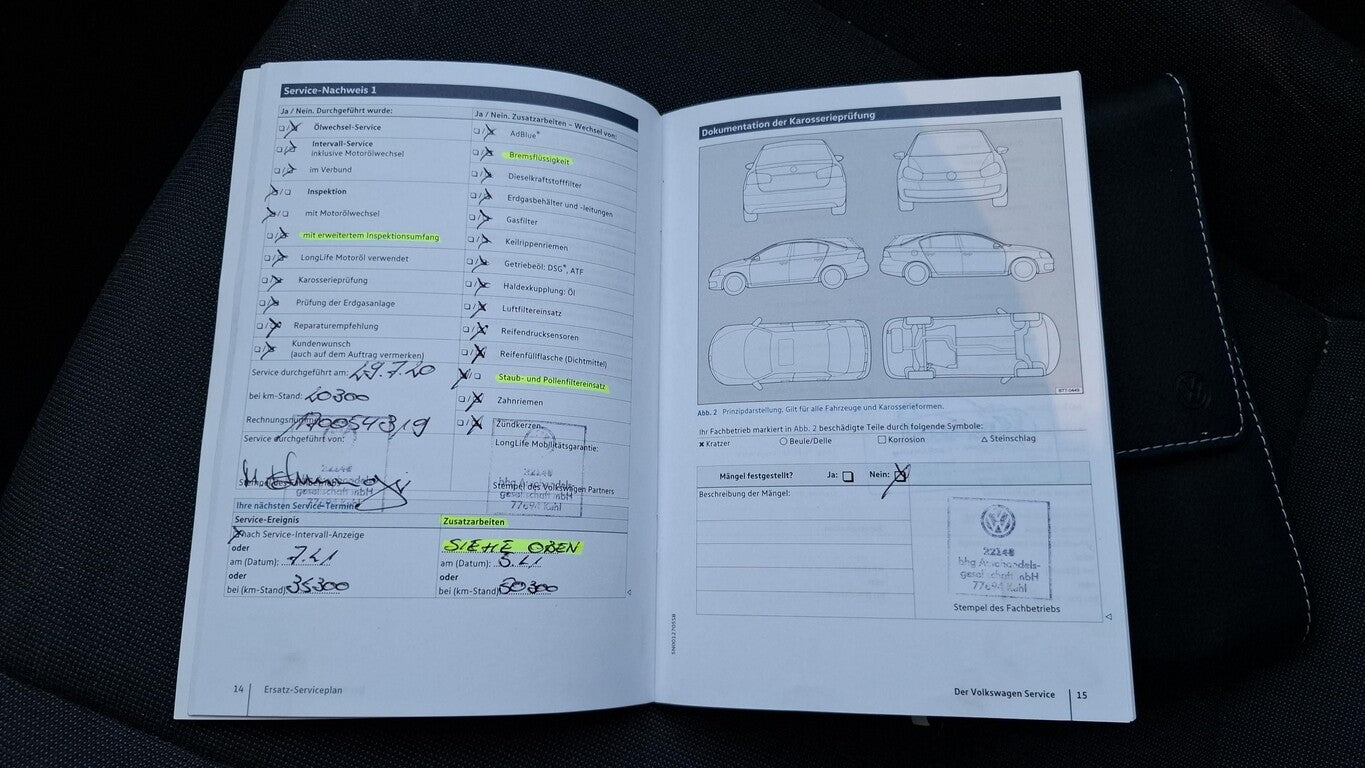 Service-Nachweis 1
Ja / Nein. Durchgeführt wurde:
Ölwechsel-Service
Intervall-Service
inklusive Motorölwechsel
im Verbund
Inspektion
mit Motorölwechsel
mit erweitertem Inspektionsumfang
LongLife Motoröl verwendet
Karosserieprüfung
Prüfung der Erdgasanlage
Reparaturempfehlung
Kundenwunsch
(auch auf dem Auftrag vermerken)
Service durchgeführt am: 29.7.20
bei km-Stand: 20300
Service durchgeführt von:
Ja / Nein. Zusatzarbeiten – Wechsel von:
AdBlue®
Bremsflüssigkeit
Dieselkraftstofffilter
Erdgasbehälter und -leitungen
Gasfilter
Keilrippenriemen
Getriebeöl: DSG®, ATF
Haldexkupplung: Öl
Luftfiltereinsatz
Reifendrucksensoren
Reifenfüllflasche (Dichtmittel)
Staub- und Pollenfiltereinsatz
Zahnriemen
Zündkerzen
LongLife Mobilitätsgarantie:
Stempel des Volkswagen Partners
Ihre nächsten Service-Termine
Service-Ereignis
nach Service-Intervall-Anzeige
oder
am (Datum): 7.21
oder
bei (km-Stand)
Zusatzarbeiten
SIEHE OBEN
am (Datum):
oder
bei (km-Stand)
14 Ersatz-Serviceplan
Dokumentation der Karosserieprüfung
BTT-0449
Abb. 2 Prinzipdarstellung. Gilt für alle Fahrzeuge und Karosserieformen.
Ihr Fachbetrieb markiert in Abb. 2 beschädigte Teile durch folgende Symbole:
Kratzer Beule/Delle Korrosion Steinschlag
Mängel festgestellt? Ja: Nein:
Beschreibung der Mängel:
22248
bhg
77694 Kehl
Stempel des Fachbetriebs
Der Volkswagen Service 15